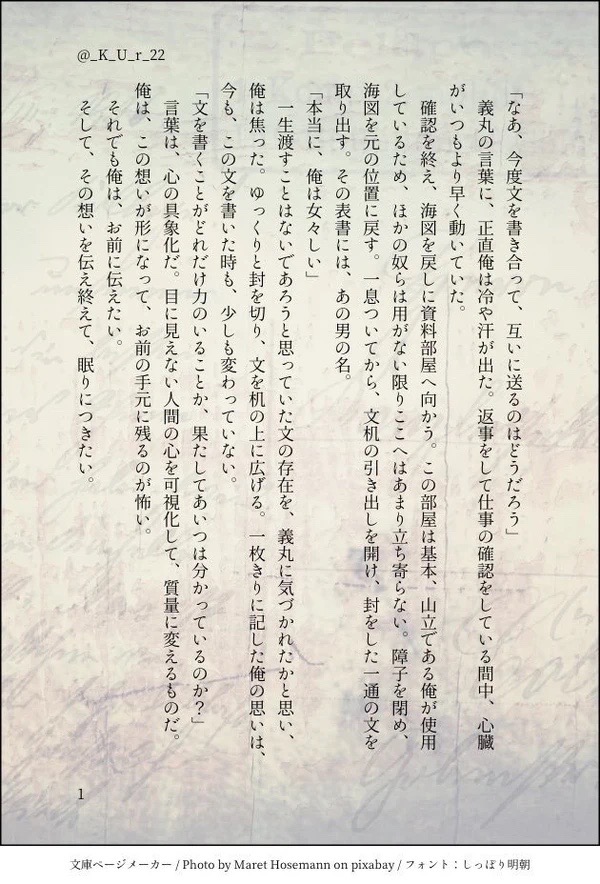 @_K_U_r_22
「なあ、今度文を書き合って、互いに送るのはどうだろう」
義丸の言葉に、正直俺は冷や汗が出た。返事をして仕事の確認をしている間中、心臓
がいつもより早く動いていた。
確認を終え、海図を戻しに資料部屋へ向かう。この部屋は基本、山立である俺が使用
しているため、ほかの奴らは用がない限りここへはあまり立ち寄らない。障子を閉め、
海図を元の位置に戻す。一息ついてから、文机の引き出しを開け、封をした一通の文を
取り出す。その表書には、あの男の名。
「本当に、俺は女々しい」
一生渡すことはないであろうと思っていた文の存在を、義丸に気づかれたかと思い、
俺は焦った。ゆっくりと封を切り、文を机の上に広げる。一枚きりに記した俺の思いは、
今も、この文を書いた時も、少しも変わっていない。
「文を書くことがどれだけ力のいることか、果たしてあいつは分かっているのか？」
言葉は、心の具象化だ。目に見えない人間の心を可視化して、質量に変えるものだ。
俺は、この想いが形になって、お前の手元に残るのが怖い。
それでも俺は、お前に伝えたい。
そして、その想いを伝え終えて、眠りにつきたい。
1
文庫ページメーカー / Photo by Maret Hosemann on pixabay / フォント：しっぽり明朝